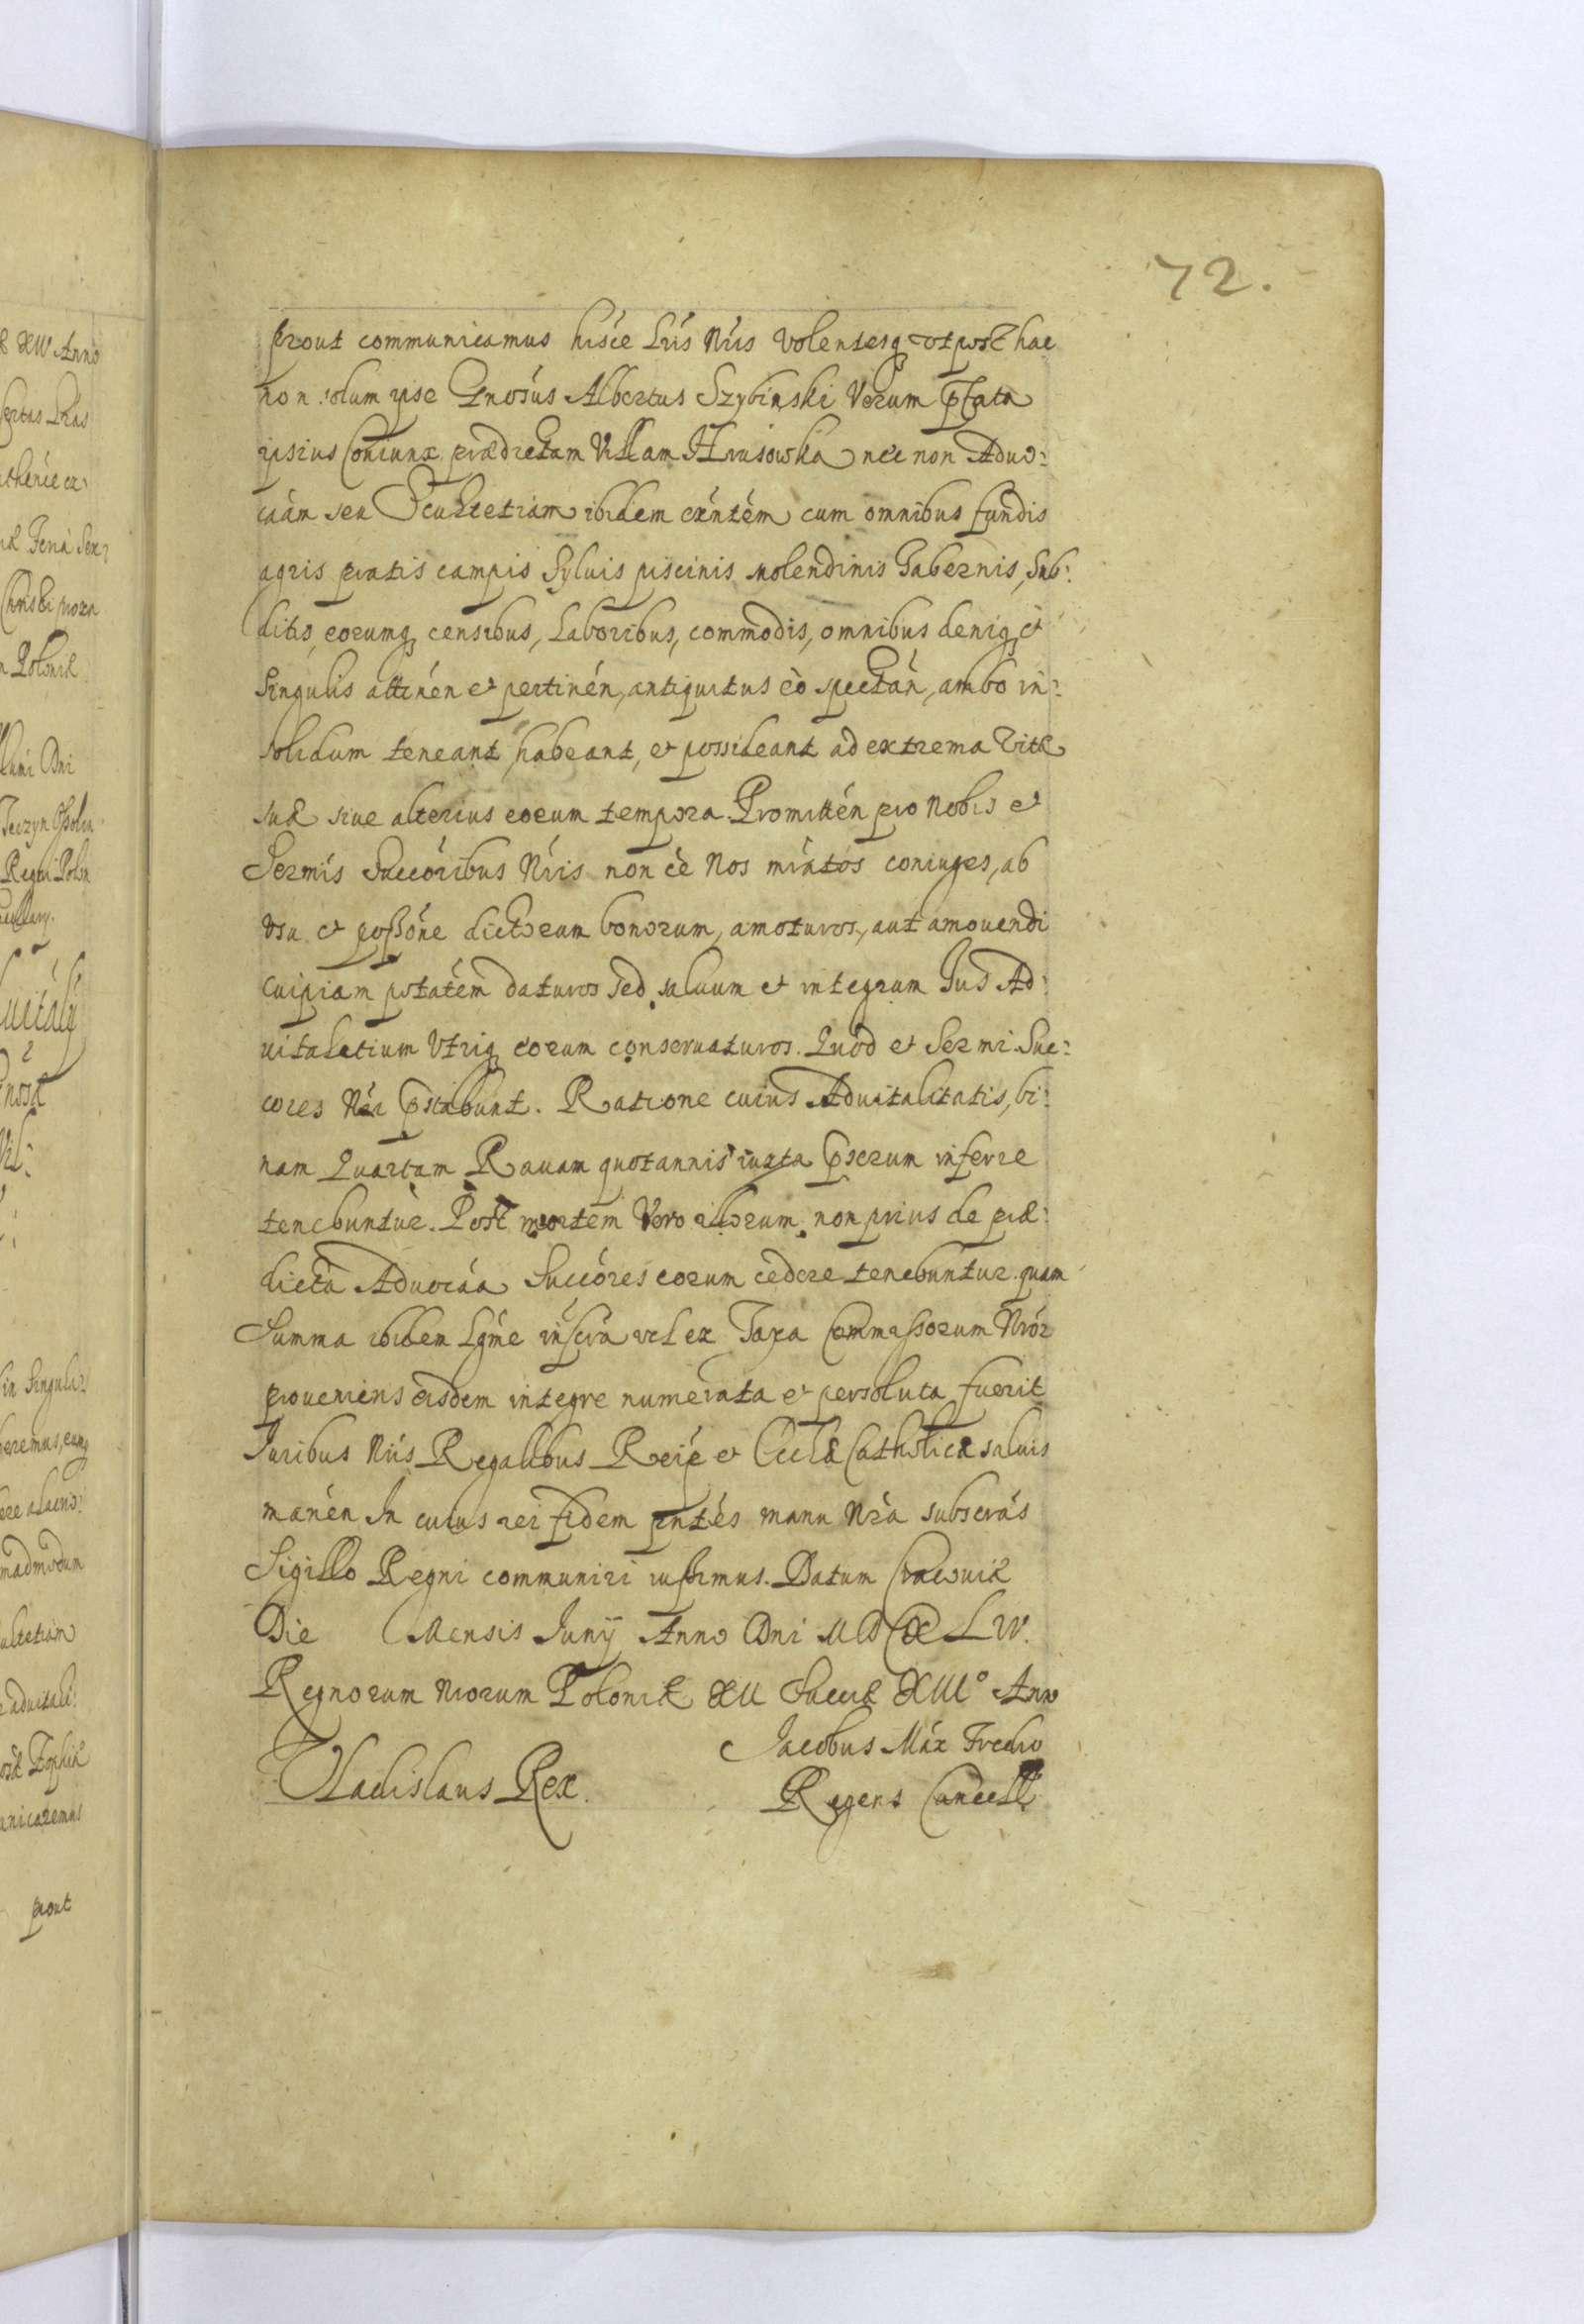 72.
prout communicamus hisce Lris Nris volentesq ut post hac
non solum ipse Gnosus Albertus Szybinski Verum pfata
ipsius Coniunx prædictam Villam Hrusowka nec non Advo:
caam seu Scultetiam ibidem exntem cum omnibus fundis
agris pratis campis Sylvis piscinis molendinis Tabernis, Sub:
ditis, eorumq censibus, Laboribus, commodis, omnibus deniq et
Singulis attinen et pertinen, antiquitus eò spectan, ambo in:
solidum teneant, habeant, et possideant ad extrema Vitæ
suæ sive alterius eorum tempora. Promitten pro Nobis et
Sermis Succoribus Nris non eè Nos mratos coniuges, ab
Usu et possone dictorum bonorum, amoturos, aut amovendi
cuipiam ptatem daturos sed salvum et integrum Jus Ad:
vitalitium Utriq eorum conservaturos. Quod et Sermi Suc:
cores Nri pstabunt. Ratione cuius Advitalitatis, bi:
nam Quartam Ravam quotannis iuxta pscrum inferre
tenebuntur. Post mortem Vero illorum non prius de præ:
dicta Advocaa Succores eorum cedere tenebuntur. quam
Summa ibidem Lgme inscra vel ex Taxa Commassorum Nror
proveniens eisdem integre numerata et persoluta fuerit
Juribus Nris Regalibus Reip et Ecclæ Catholicæ salvis
manen In cuius rei fidem pntes manu Nra subscras
Sigillo Regni communiri iussimus. Datum Cracoviæ
Die Mensis Junÿ Anno Dni MDCXLIV.
Regnorum Nrorum Poloniæ XII Sueciæ XIII° Anno
Vladislaus Rex.
Jacobus Max Fredro
Regens Cancell